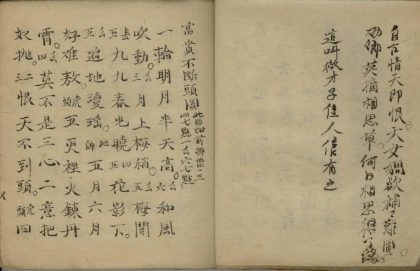 自在情天即恨天女媧欲補々難圓
勸卿莫摘相思草何日相思得了緣
這叫做才子佳人信有之
富貴不斷頭圖
一輪明月半天高 和風
吹動 月上梅稍 梅開
九九春光曉 花影下
遍地瓊瑤 五月六月
好難熬 五更裡火鍊丹
霄 莫不是三心二意把
奴拋 恨天不到頭